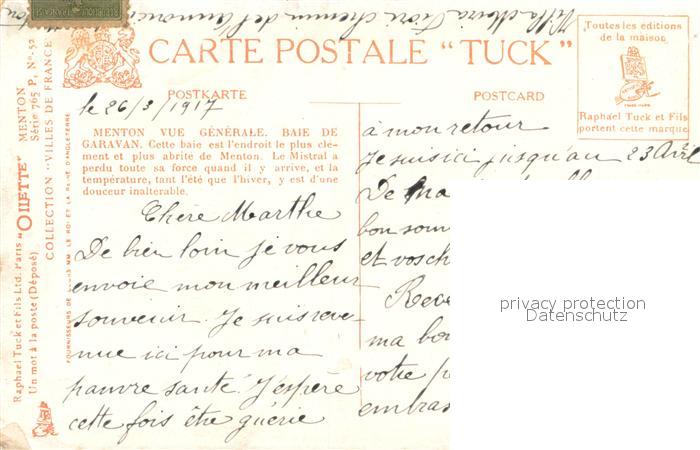 Villa Maria Fiori Chemin de l'
CARTE POSTALE "TUCK"
POSTKARTE
POSTCARD
Toutes les éditions
de la maison
Raphael Tuck et Fils
portent cette marque
Raphael Tuck et Fils Ltd. Paris "OILETTE" MENTON
Un mot à la poste (Déposé) Série 765 P, No. 52
COLLECTION "VILLES DE FRANCE"
FOURNISSEURS DE LEURS MM. LE ROI ET LA REINE D'ANGLETERRE.
le 26/3/1917
MENTON VUE GÉNÉRALE. BAIE DE
GARAVAN. Cette baie est l'endroit le plus clé-
ment et plus abrite de Menton. Le Mistral a
perdu toute sa force quand il y arrive, et la
température, tant l'été que l'hiver, y est d'une
douceur inalterable.
Chère Marthe
De bien loin je vous
envoie mon meilleur
souvenir. Je suis reve-
nue ici pour ma
pauvre santé. J'espère
cette fois être guérie
à mon retour
Je suis ici jusqu'au 23 Avril
De
bon
et vos
ma
votre
privacy protection
Datenschutz